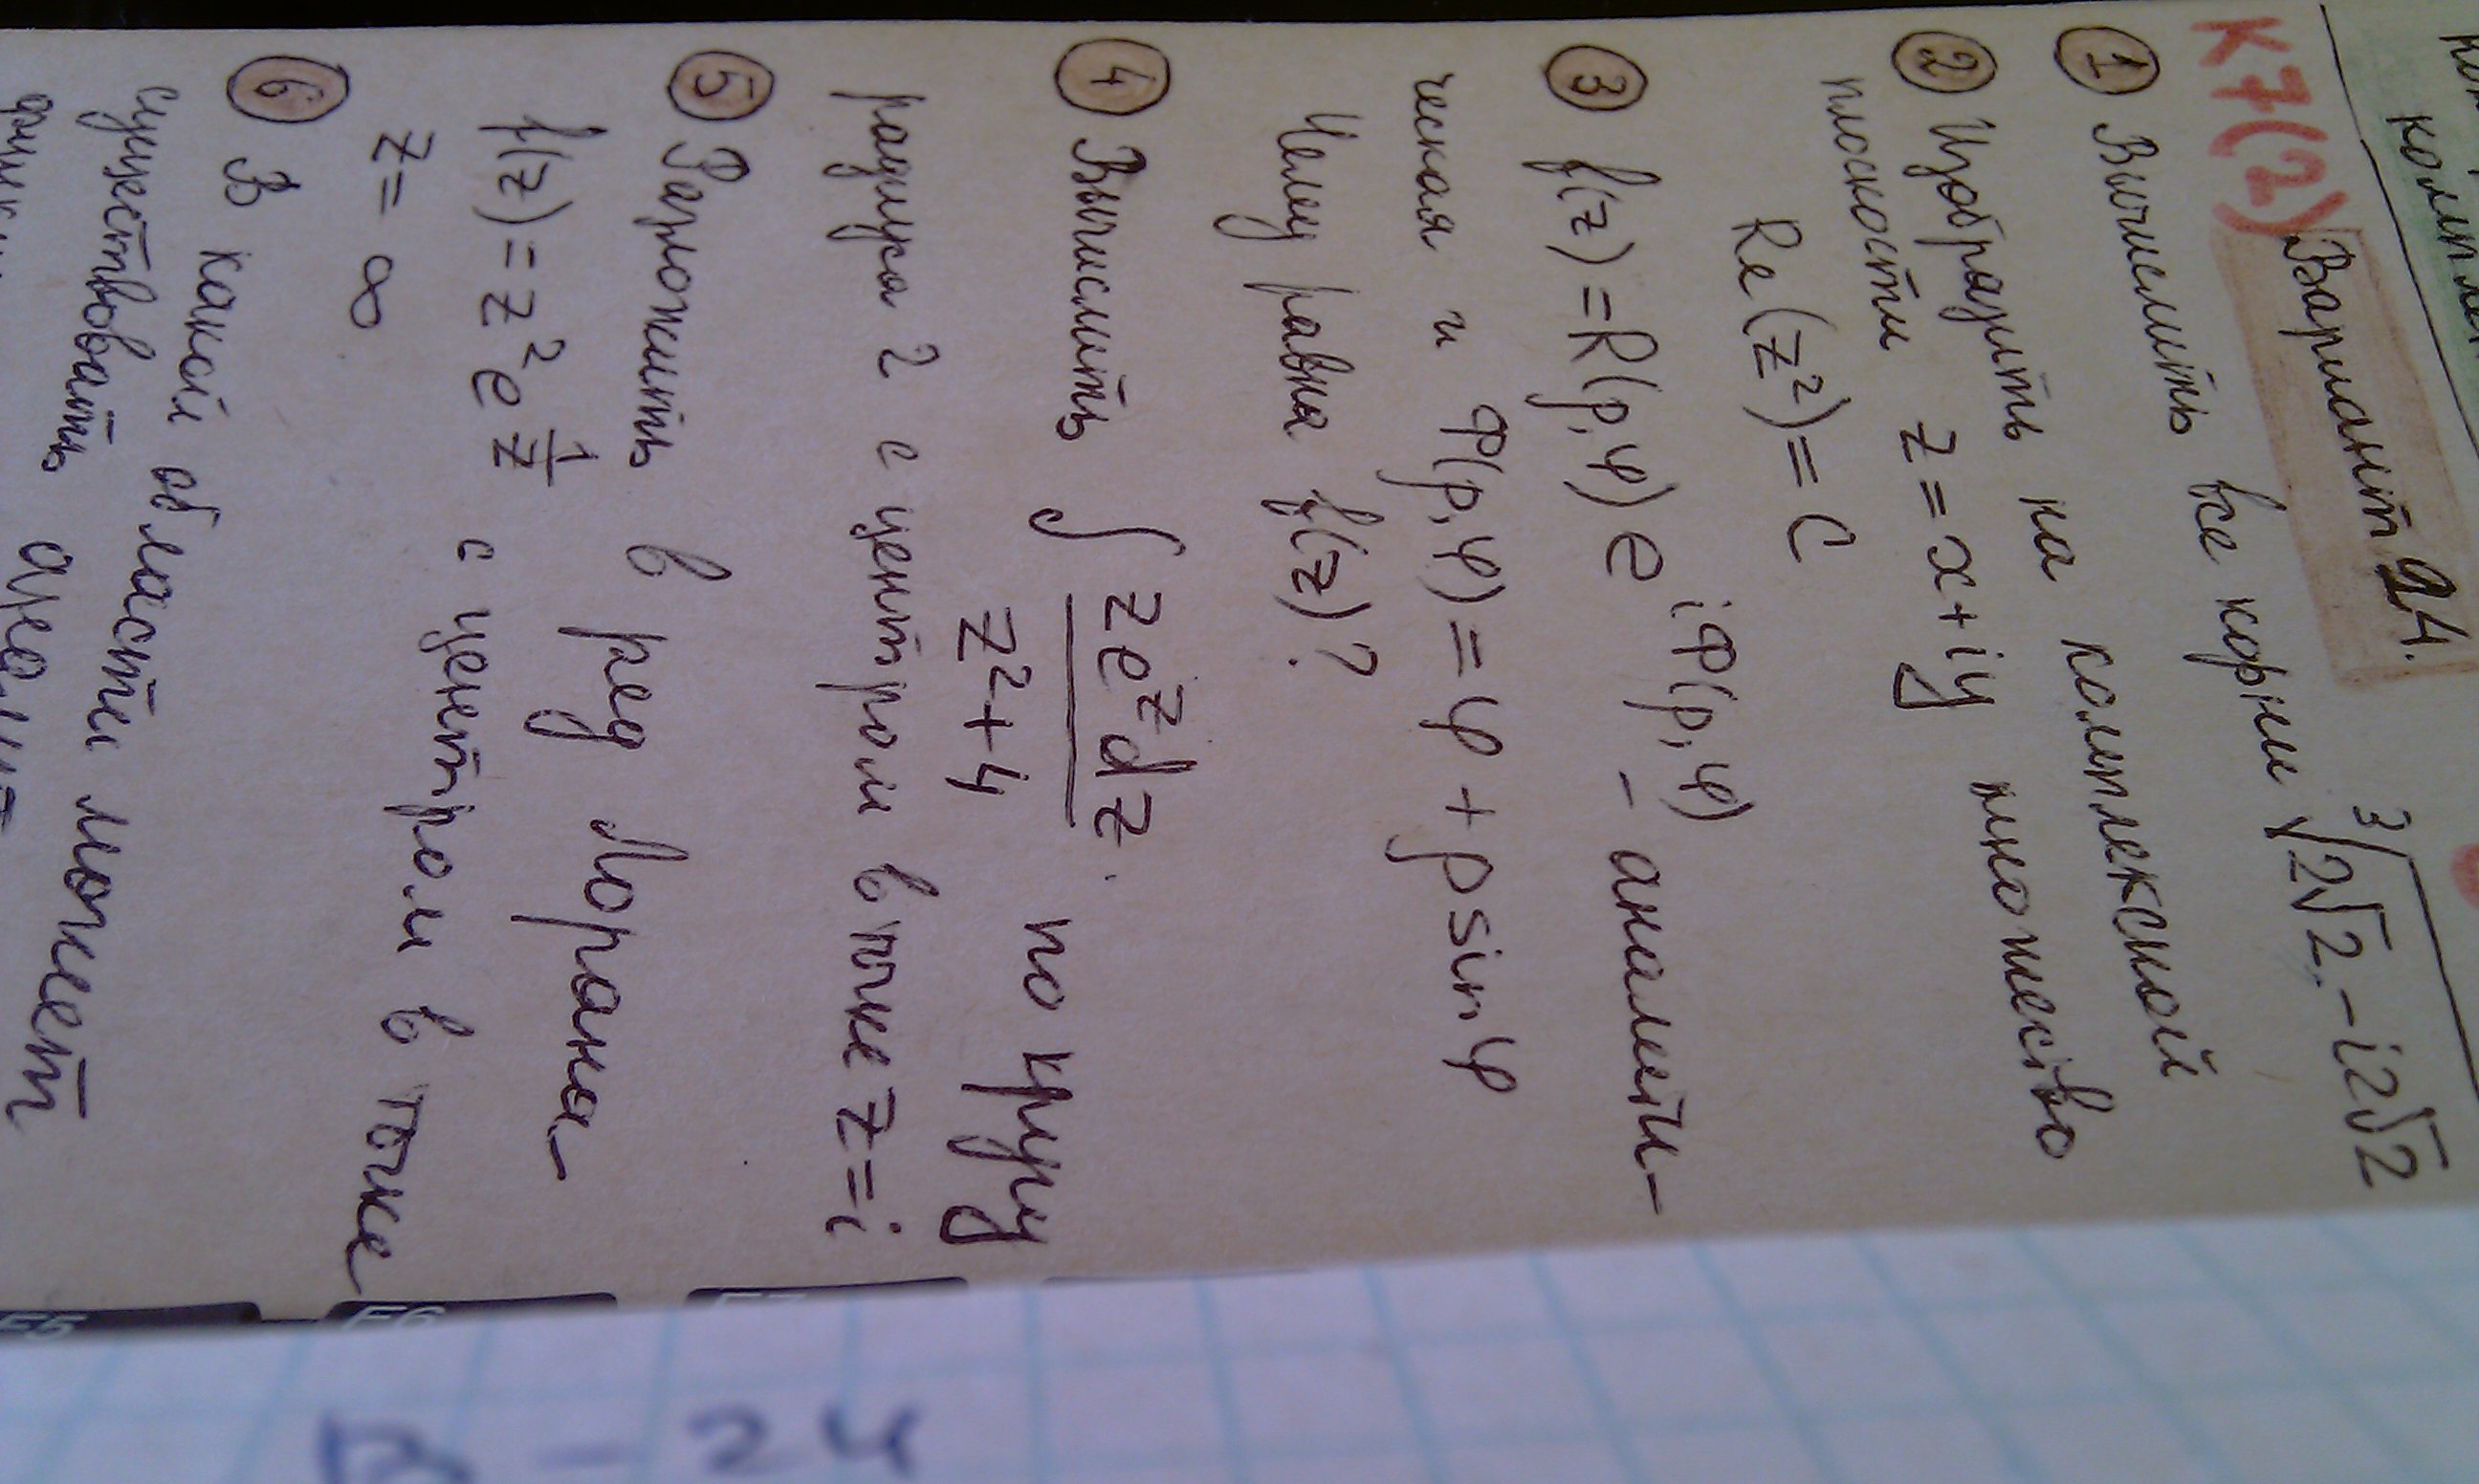 компле
К7(2) Вариант 24.
① Вычислить все корни ∛(2√2 - i2√2)
② Изобразить на комплексной
плоскости z = x+iy множество
Re(z²) = C
③ f(z) = R(ρ,φ) e^{iФ(ρ,φ)} - аналити-
ческая и Ф(ρ,φ) = φ + ρ sin φ
Чему равна f(z)?
④ Вычислить ∫ (z e^z dz)/(z²+4) по кругу
радиуса 2 с центром в точке z = i
⑤ Разложить в ряд Лорана
f(z) = z² e^{1/z} с центром в точке
z = ∞
⑥ В какой области может
существовать анали-
F7
F6
F5
В - 24